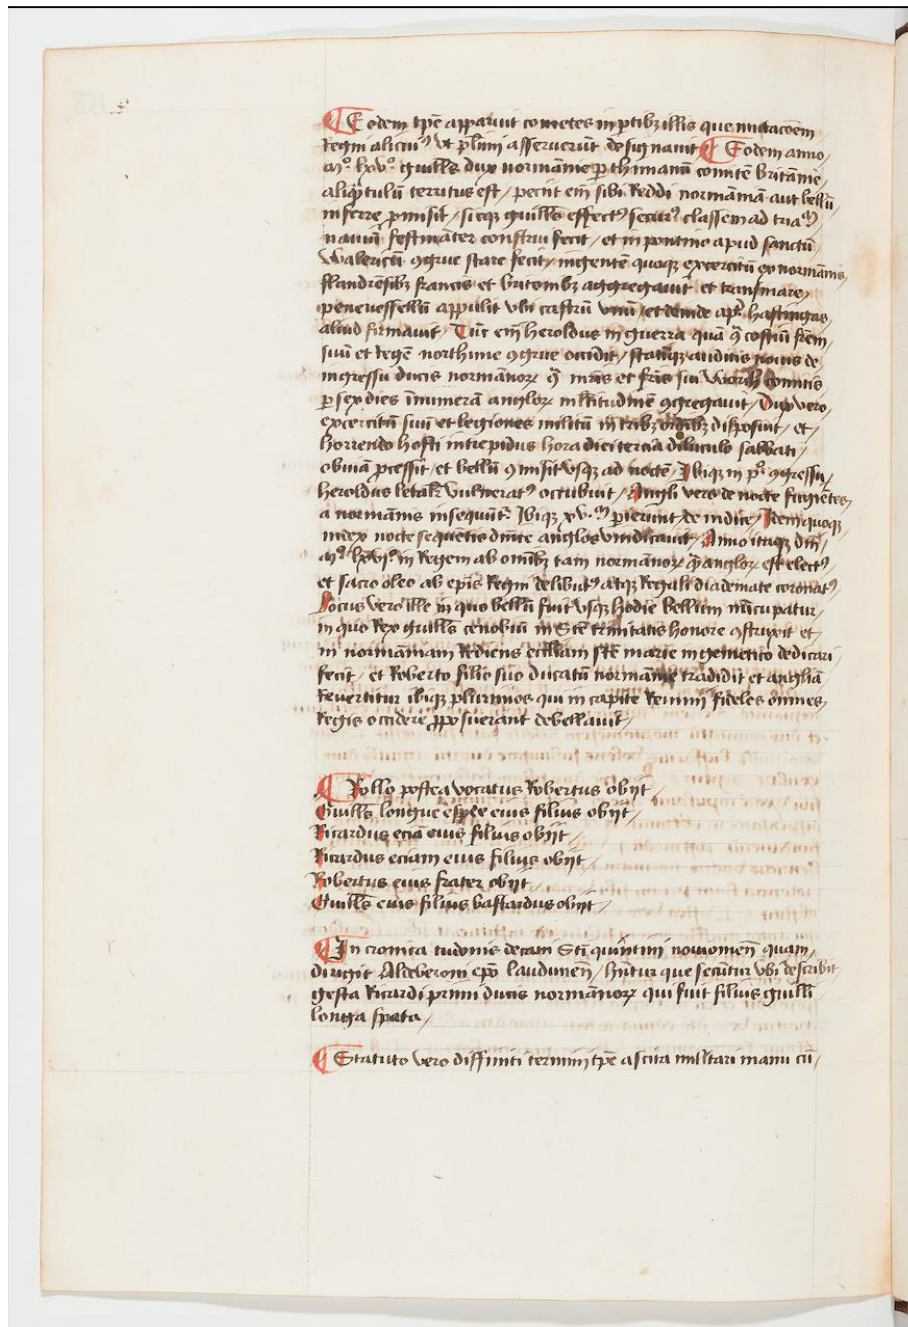 Eodem tpē apparuit cometes in ptibz illis que mutacōem
Regni alicuiꝰ vt plīmi asseruerūt designauit Eodem anno
mo lxvo guillɜ dux normānie per comitē britānie
aliqntulū territus est / peciit em̄ sibi Reddi normāniā aut bellū
inferre promisit / sicqz guillɜ effectꝰ securꝰ classem ad tria
nauiū festināter construi fecit / et in pontiuo apud sanctū
walericū ꝯgrue stare fecit / ingentē quoqz excercitū ex normānis
flandrēsibz francis et britonibz aggregauit et transmare
peneuessellū appulit vbi castrū vnū / et deinde apd hastingas
aliud firmauit / Tūc em̄ heroldus in guerra quā frēm
suū et Regē ꝯgrue occidit / statimqz auditis nouis de
ingressu ducis normānoꝝ et frīs sui comitis
per sex dies īnumerā angloꝝ mltitudinē ꝯgregauit / Dux vero
excercitū suū et legiones militū in tribz ordībz disposuit / et
horrendo hosti intrepidus hora diei tercia diluculo sabbati
obuiā pressit / et bellū ꝯmisit vsqz ad noctē / Ibiqz in po ꝯgressu
heroldus letalr vulneratꝰ occubuit / Angli vero de nocte fugiētes
a normānis insequūtr Ibiqz xv pierunt / de iudice / Idem quoqz
iudex nocte sequentis dnīce anglos vindicauit / Anno itaqz dnī
mo lxvjo in Regem ab omībz tam normānoꝝ qm̄ angloꝝ est electꝰ
et sacro oleo ab epīs Regni delibutꝰ atqz Regali diademate coronatꝰ
Locus vero ille in quo bellū fuit vsqz hodie bellum nūcupatur
in quo Rex guillɜ cenobiū in Stē trinitatis honore ꝯstruxit et
in normāniam Rediens eccliam stē marie in gemetico dedicari
fecit / et Roberto filio suo ducatū normānie tradidit et angliā
Reuertitur ibiqz plurimos qui in capite Ieiunij fideles omnes
Regis occidere pposuerant debellauit /
Rollo postea vocatus Robertus obijt
Guillɜ longue espee eius filius obijt /
Ricardus eciā eius filius obijt /
Ricardus eciam eius filius obijt /
Robertus eius frater obijt /
Guillɜ eius filius bastardus obijt /
In cronica tudonis decani Sti quintini quam
dirigit Aldeberoni epō laudunen̄ / hn̄tur que secūtur vbi describit
gesta Ricardi primi ducis normānoꝝ qui fuit filius guilli
longa spata /
Statuto vero diffiniti termini tpē ascita militari manu cū /